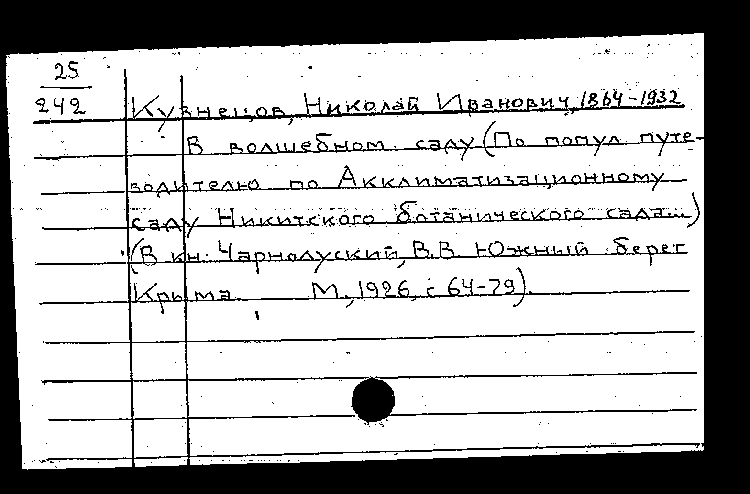 25
242
Кузнецов, Николай Иванович, 1864-1932
В волшебном саду (По попул. путе-
водителю по Акклиматизационному
саду Никитского ботанического сада...)
(В кн: Чарнолуский, В.В. Южный берег
Крыма. М., 1926, с 64-79).